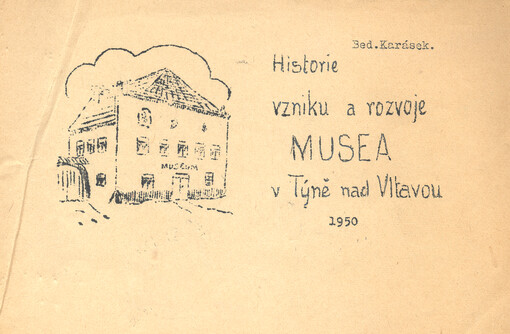 Bed.Karásek.
Historie
vzniku a rozvoje
MUSEA
v Týně nad Vltavou
1950
MUSEUM